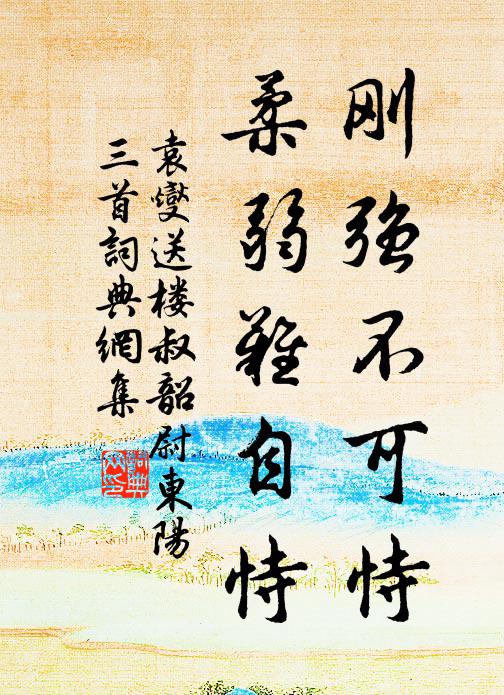 刚强不可恃
柔弱難自恃
袁燮送楼叔韶尉東陽
三首詞典網集